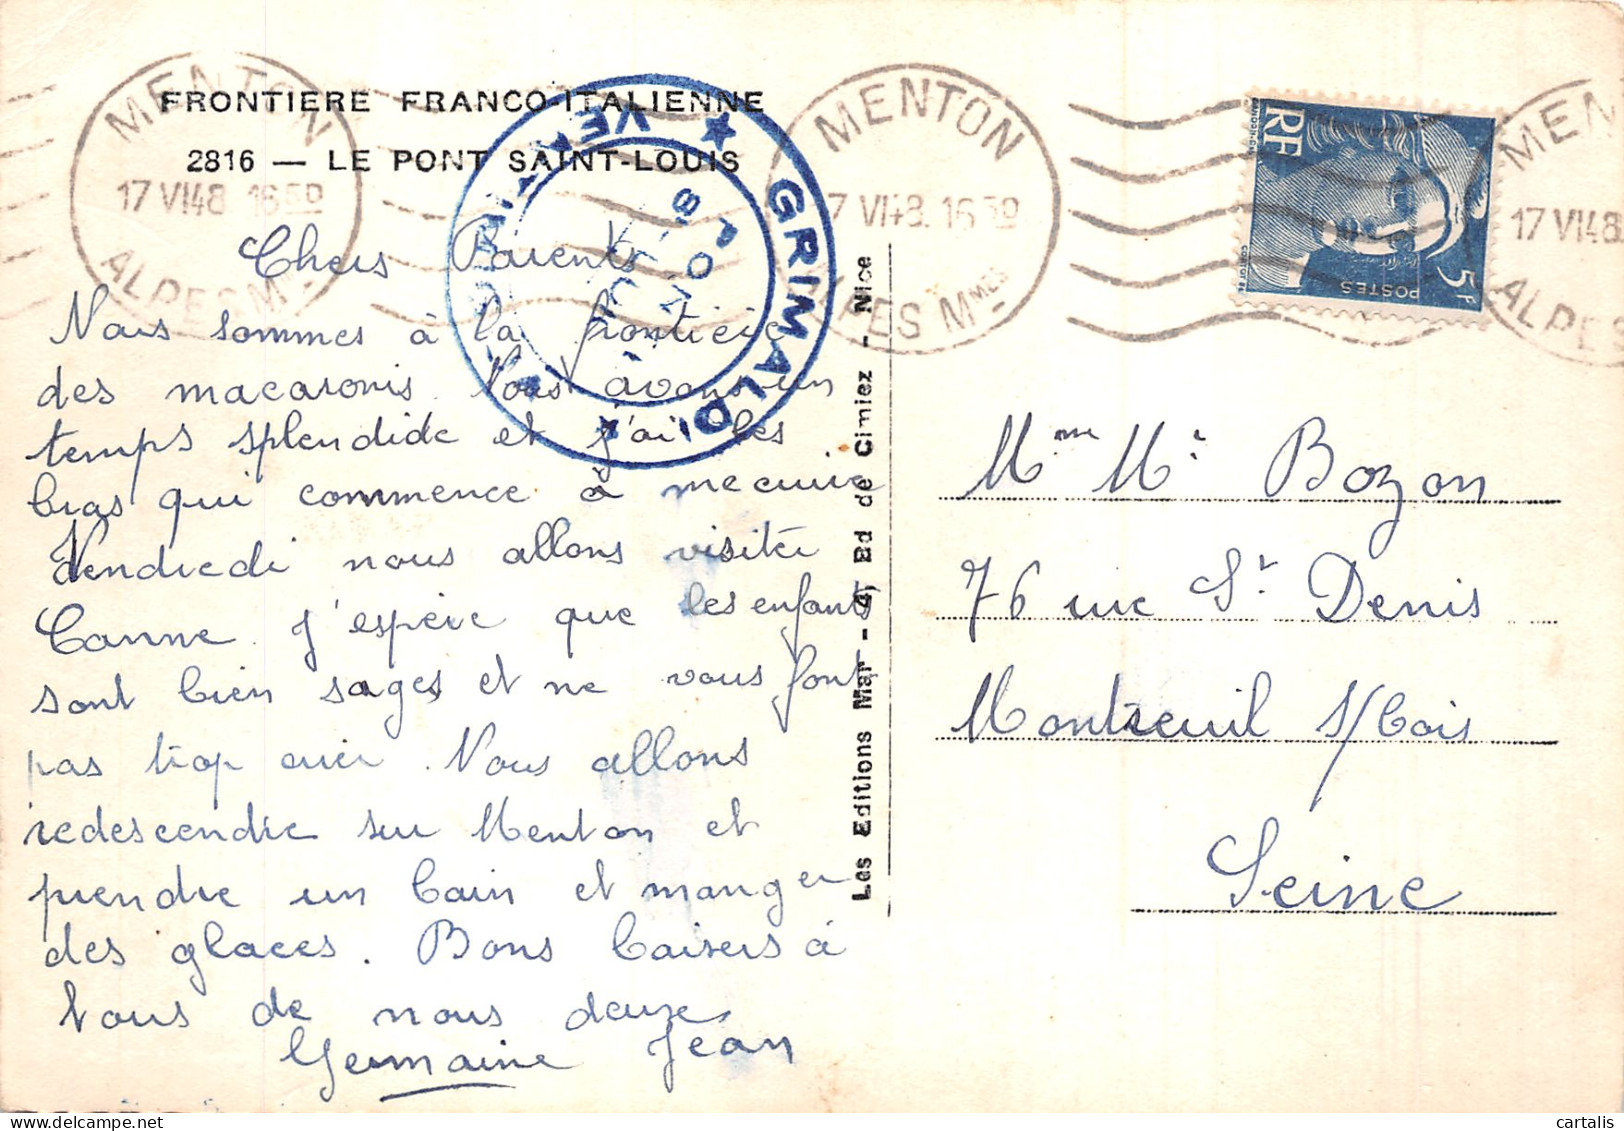 FRONTIERE FRANCO-ITALIENNE
2816 — LE PONT SAINT-LOUIS
MENTON
17 VI48 16 50
ALPES Mmes
MENTON
17 VI48. 16 50
ALPES Mmes
MENTON
17 VI48
ALPES
GRIMALDI
RF
POSTES
5F
Chers Parents
Nous sommes à la frontière
des macaronis. Nous avons un
temps splendide et j'ai les
bras qui commence à me cuire
Vendredi nous allons visiter
Canne. J'espère que les enfants
sont bien sages et ne vous font
pas trop crier. Nous allons
redescendre sur Menton et
prendre un bain et manger
des glaces. Bons baisers à
tous de nous deux
Germaine Jean
Les Editions Mar - 4, Bd de Cimiez - Nice
Mme Mr Bozon
76 rue St Denis
Montreuil s/bois
Seine
cartalis
www.delcampe.net